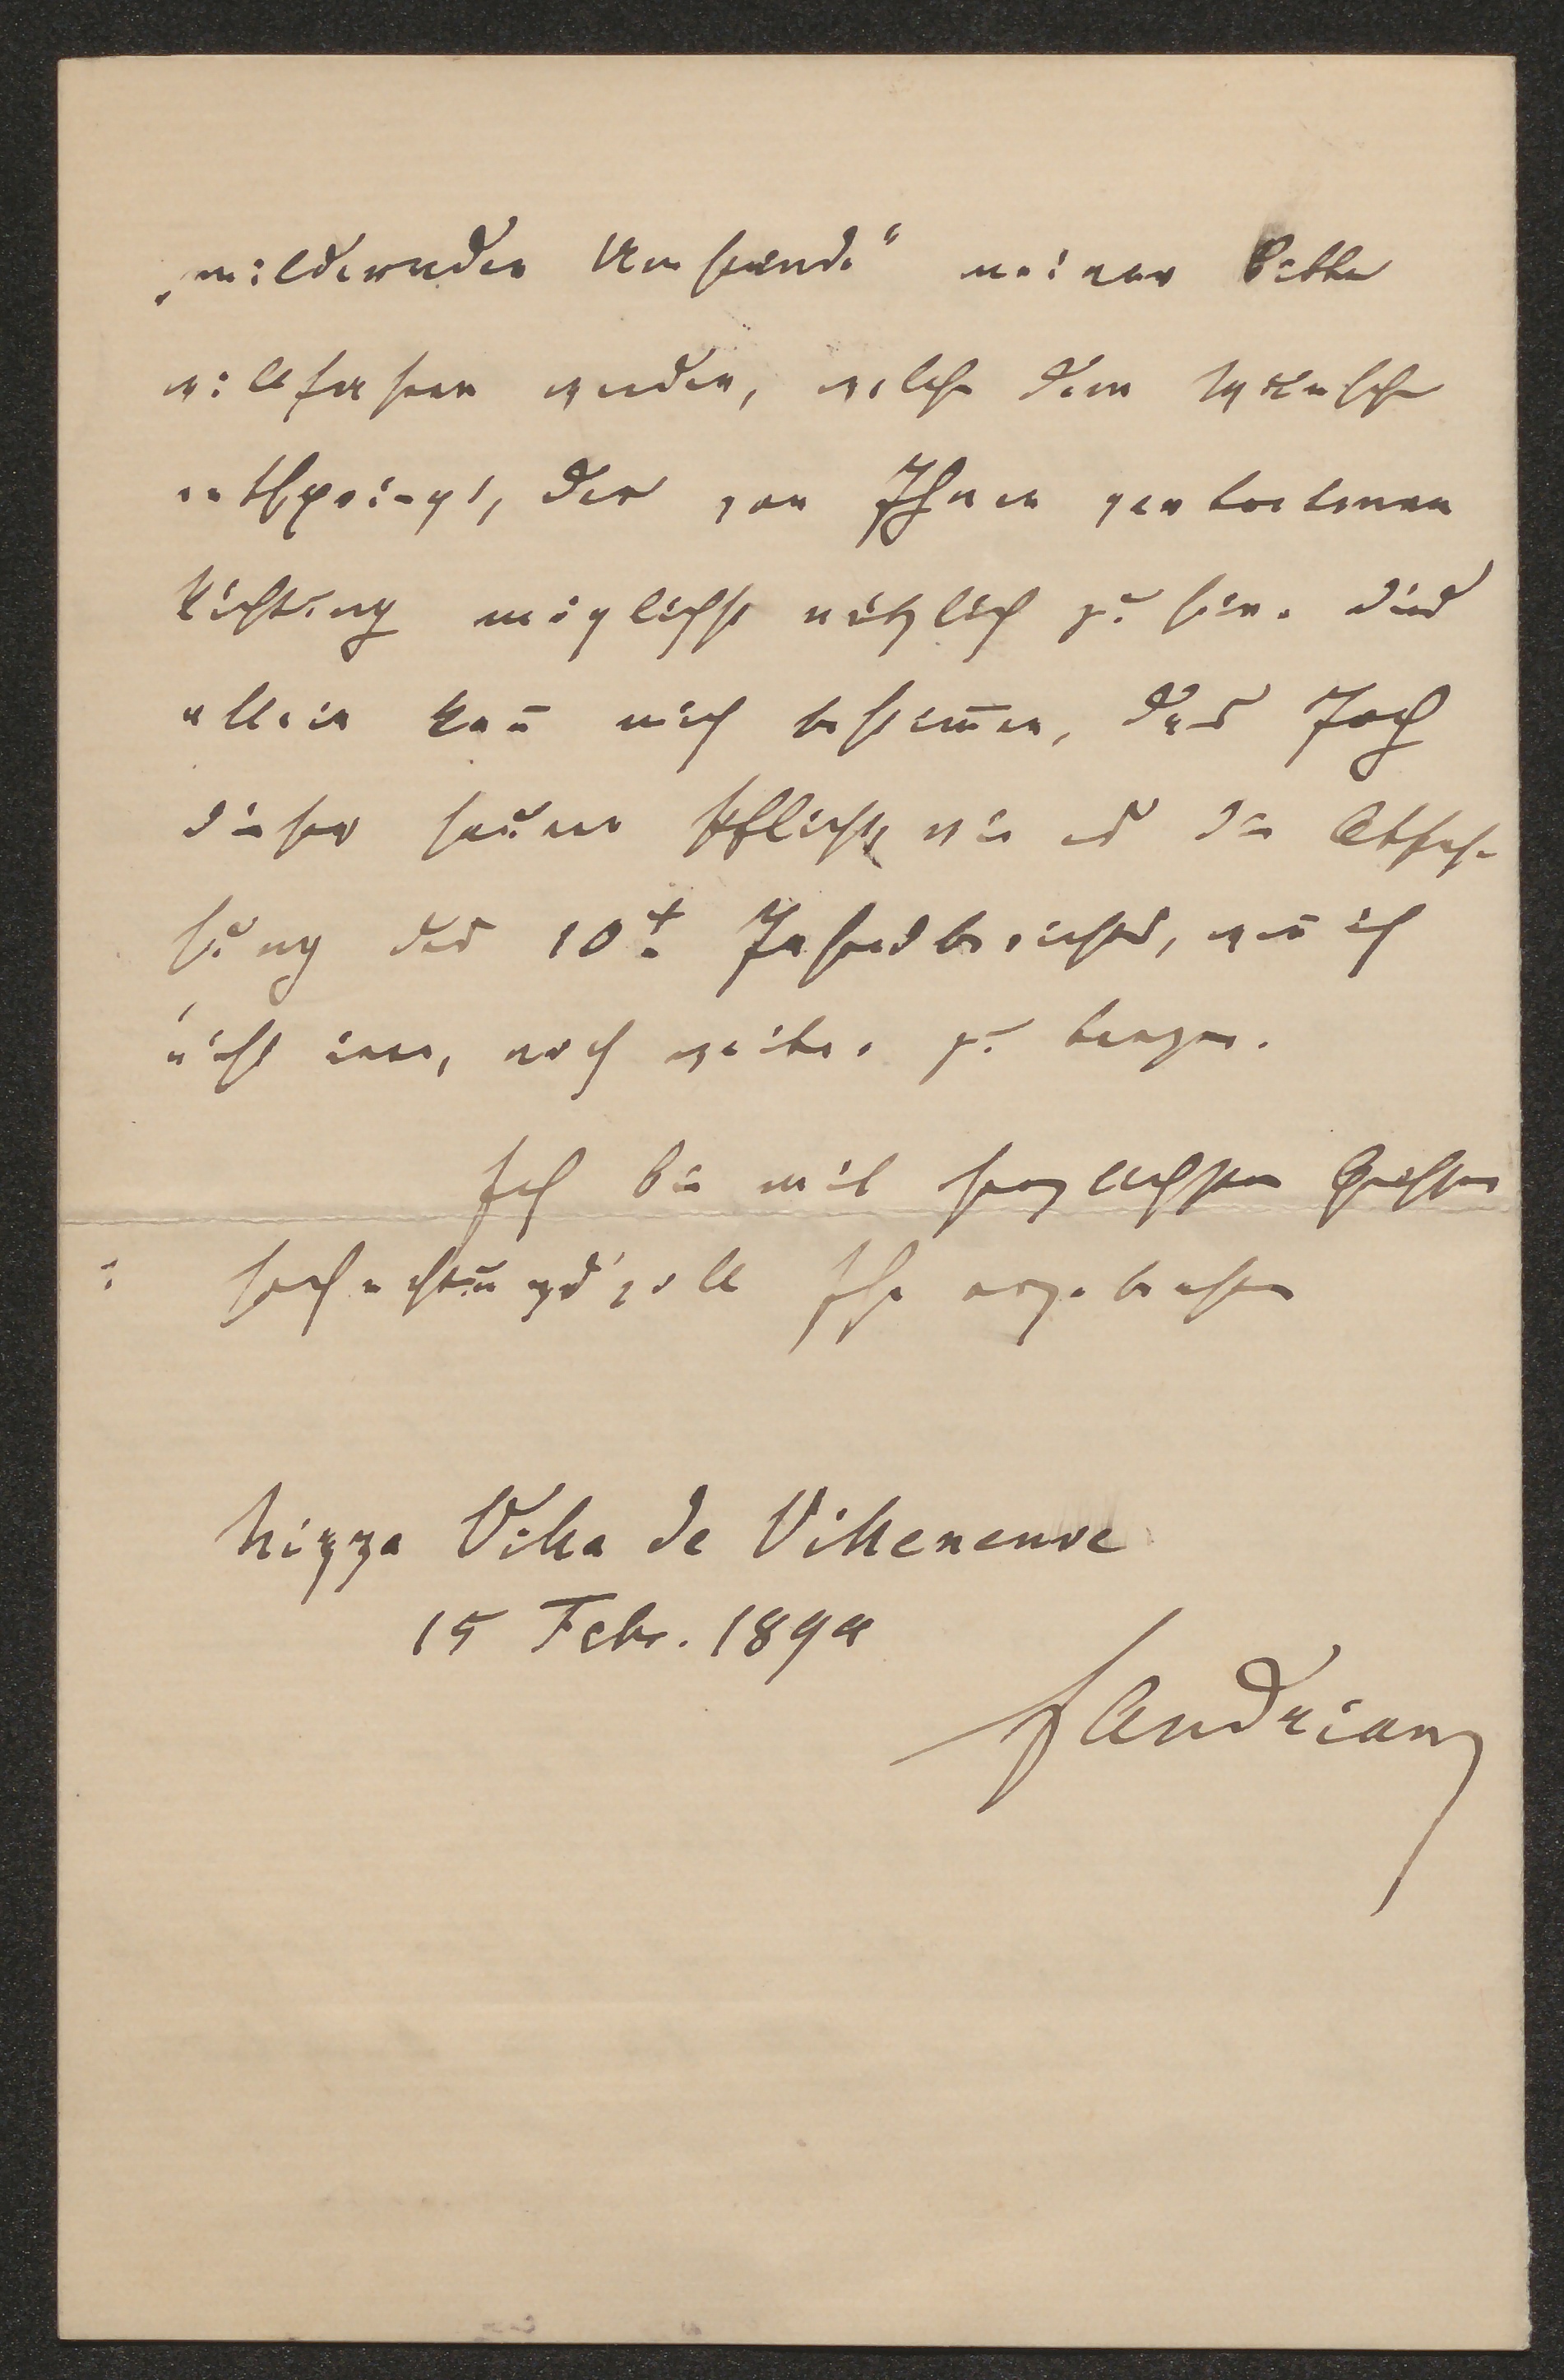 „mildernden Umstände“ meiner Bitte
willfahren werden, welche dem Wunsche
entspringt, der von Ihnen vertretenen
Richtung möglichst nützlich zu sein. Dies
allein kan̄ mich bestim̄en, das Joch
dieser sauren Pflicht, wie es die Abfas-
sung des 10t Jahresberichtes, wen̄ ich
nicht irre, noch weiter zu tragen.
Ich bin mit herzlichsten Grüssen
hochachtungsvoll Ihr ergebenster
Nizza Villa de Villeneuve
15 Febr. 1894
FAndrian